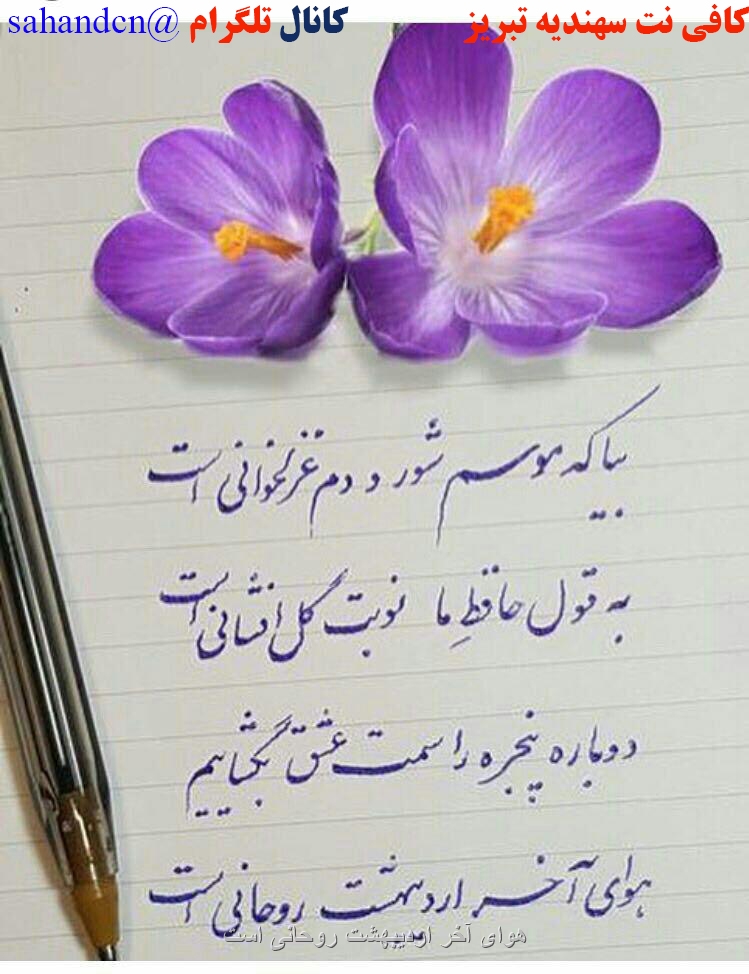 کافی نت سهندیه تبریز کانال تلگرام @sahandcn
بیا که موسم شور و دم غزلخوانی است
به قول حافظِ ما نوبت گل افشانی است
دوباره پنجره را سمت عشق بگشاییم
هوای آخر اردیبهشت روحانی است
هوای آخر اردیبهشت روحانی است